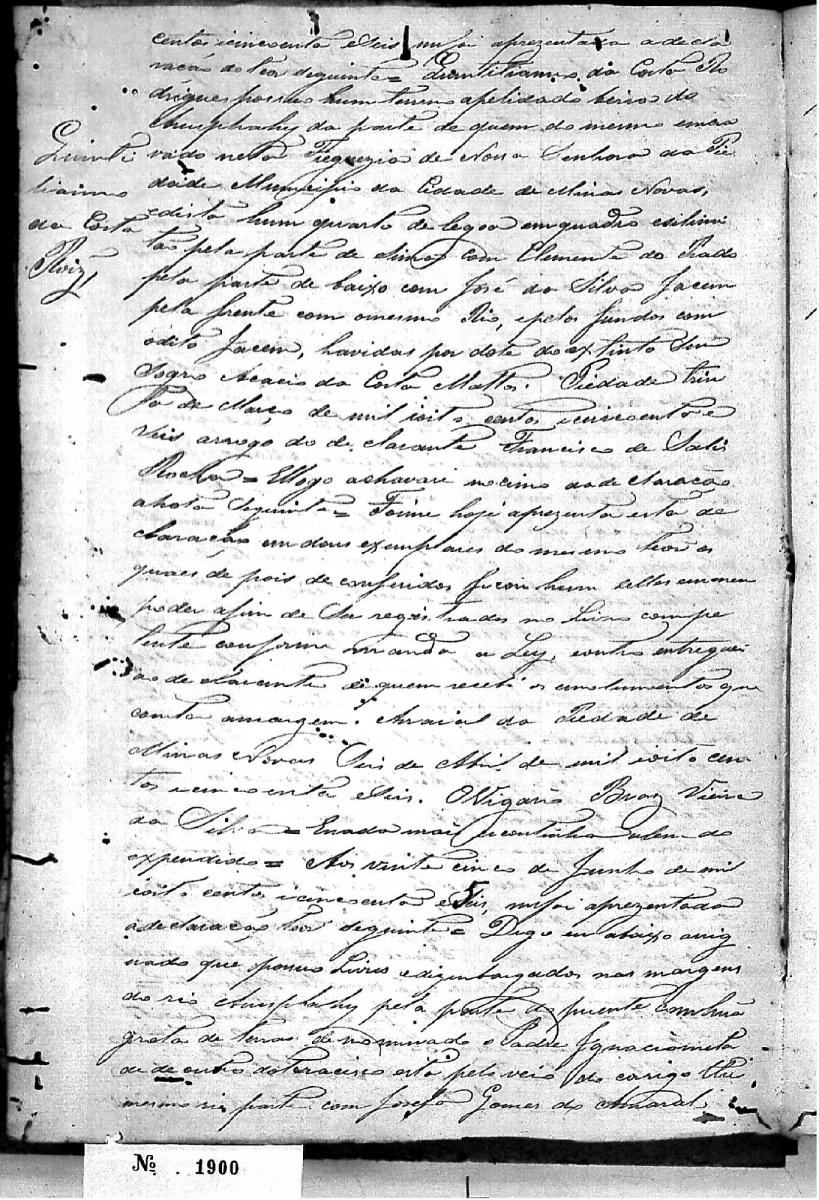 centos icincoenta eSeis mefoi aprezentada adecla
ração doteor Seguinte = Quintilianno da Costa Ro
drigues possue hum terreno apelidado beira do
da parte de quem do mesmo
vado nesta Freguezia de Nossa Senhora da Pie
dade Municipio da Cidade de Minas Novas,
Quinti
lianno
da Costa
Roiz,
edista hum quarto de legoa emquadro eselimi
tão pela parte de Sima com Clemente do Prado
pela parte de baixo com José da Silva Jacem
pela frente com omesmo Rio, epelos fundos com
odito Jacem, havidas por dote do extinto Seu
Sogro Acacio da Costa Mattos. Piedade trin
ta de Março de mil ioito centos icincoenta e
Seis arrogo do declarante Francisco de Salis
Rocha = Ellogo achavace nocimo dadeclaração
anota Seguinte = Foime hoje aprezenta esta de
claração emdous exemplares do mesmo teor os
quaes de pois de conferidos ficou hum delles emmeu
poder afim de Ser registrados no Livro compe
tente conforme manda a Ley, eoutro entreguei
aode clarante dequem recebi os emolumentos que
consta amargem. Arraial da Piedade de
Minas Novas Seis de Abril de mil ioito cen
tos icincoenta eSeis. OVigario Braz Vieira
da Silva = Enada mais Secontinha alem do
expendido = Aos vinte cinco de Junho de mil
ioito centos icincoenta eSeis, mefoi aprezentada
adeclaração teor Seguinte = Digo eu abaixo asig
nado que posuo Livres edizembargados nas margens
do rio pela parte do puente comhũa
grota de terras denominado o Padre Ignacio
de de outro pelo veio do corigo
mesmo rio parte com Josefa Gomes do Amaral,
No. 1900